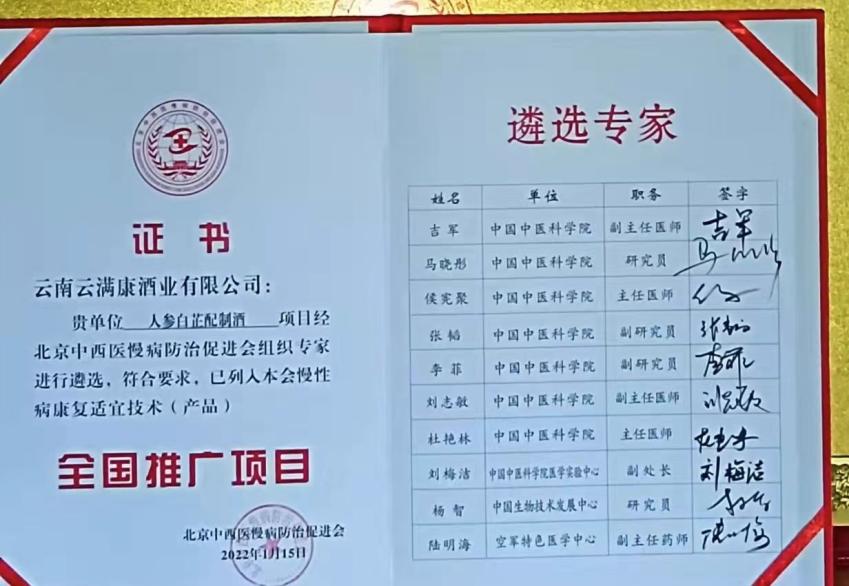 证书
云南云满康酒业有限公司：
贵单位 人参白芷配制酒 项目经
北京中西医慢病防治促进会组织专家
进行遴选，符合要求，已列入本会慢性
病康复适宜技术（产品）
全国推广项目
北京中西医慢病防治促进会
2022年1月15日
遴选专家
姓名 单位 职务 签字
吉军 中国中医科学院 副主任医师 吉军
马晓彤 中国中医科学院 研究员
侯宪聚 中国中医科学院 主任医师
张韬 中国中医科学院 副研究员
李菲 中国中医科学院 副研究员
刘志敏 中国中医科学院 副主任医师
杜艳林 中国中医科学院 主任医师
刘梅洁 中国中医科学院医学实验中心 副处长 刘梅洁
杨智 中国生物技术发展中心 研究员
陆明海 空军特色医学中心 副主任药师